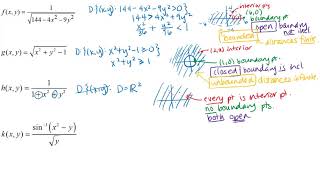 f(x, y) = 1/√(144 − 4x² − 9y²)
D: {(x,y): 144−4x²−9y²>0}
144 > 4x²+9y²
x²/36 + y²/16 < 1
interior pt.
(6,0)
boundary pt.
open
boundary not incl
bounded
distances finite
g(x, y) = √(x² + y² − 1)
D: {(x,y): x²+y²−1≥0}
x²+y²≥1
interior
(1,0) boundary pt.
closed
boundary is incl
unbounded
distances infinite.
h(x, y) = 1/(1 + x² + y²)
D: {(x,y): D=ℝ²
every pt is interior pt.
no boundary pts.
both open
k(x, y) = sin⁻¹(x² − y)/√y